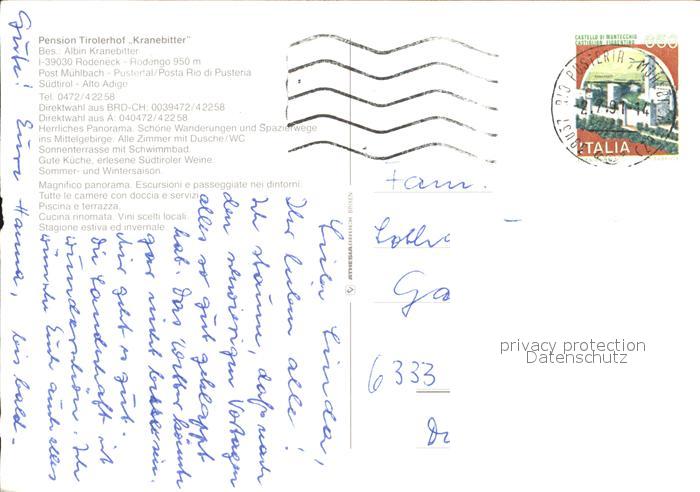 Pension Tirolerhof „Kranebitter"
Bes.: Albin Kranebitter
I-39030 Rodeneck - Rodengo 950 m
Post Mühlbach - Pustertal/Posta Rio di Pusteria
Südtirol - Alto Adige
Tel. 0472/42258
Direktwahl aus BRD-CH: 0039472/42258
Direktwahl aus A: 040472/42258
Herrliches Panorama. Schöne Wanderungen und Spazierwege
ins Mittelgebirge. Alle Zimmer mit Dusche/WC
Sonnenterrasse mit Schwimmbad.
Gute Küche, erlesene Südtiroler Weine.
Sommer- und Wintersaison.
Magnifico panorama. Escursioni e passeggiate nei dintorni.
Tutte le camere con doccia e servizi
Piscina e terrazza.
Cucina rinomata. Vini scelti locali.
Stagione estiva ed invernale.
CASTELLO DI MONTECCHIO
CASTIGLION FIORENTINO
650
ITALIA
Liebe Linda,
Ihr lieben alle!
Ich staune, daß nach
den schwierigen Vortagen
alles so gut geklappt
hat. Das Wetter könnte
gar nicht besser sein.
Mir geht es gut.
Die Landschaft ist
wunderschön. Ich
wünsche Euch auch alles
Gute! Eure Hanna, bis bald -
ATHESIADRUCK BRIXEN
Fam.
6333
privacy protection
Datenschutz